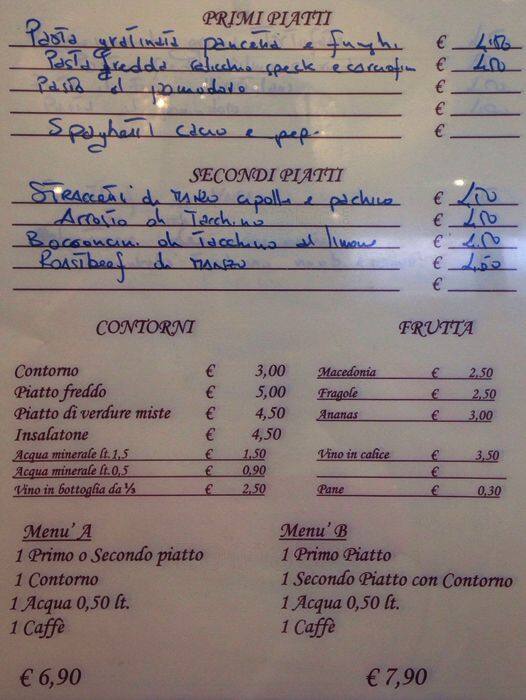 PRIMI PIATTI
Pasta gratinata pancetta e funghi € 4.50
Pasta fredda radicchio speck e carciofini € 4.50
Pasta al pomodoro €
€
Spaghetti cacio e pep. €
SECONDI PIATTI
STRACCETTI di MANZO cipolla e pachino € 4.50
Arrosto di Tacchino € 4.50
Bocconcini di Tacchino al limone € 4.50
ROASTbeef di MANZO € 4.50
€
CONTORNI
Contorno € 3,00
Piatto freddo € 5,00
Piatto di verdure miste € 4,50
Insalatone € 4,50
Acqua minerale lt.1,5 € 1,50
Acqua minerale lt.0,5 € 0,90
Vino in bottoglia da ⅓ € 2,50
FRUTTA
Macedonia € 2,50
Fragole € 2,50
Ananas € 3,00
Vino in calice € 3,50
€
Pane € 0,30
Menu' A
1 Primo o Secondo piatto
1 Contorno
1 Acqua 0,50 lt.
1 Caffè
€ 6,90
Menu' B
1 Primo Piatto
1 Secondo Piatto con Contorno
1 Acqua 0,50 lt.
1 Caffè
€ 7,90